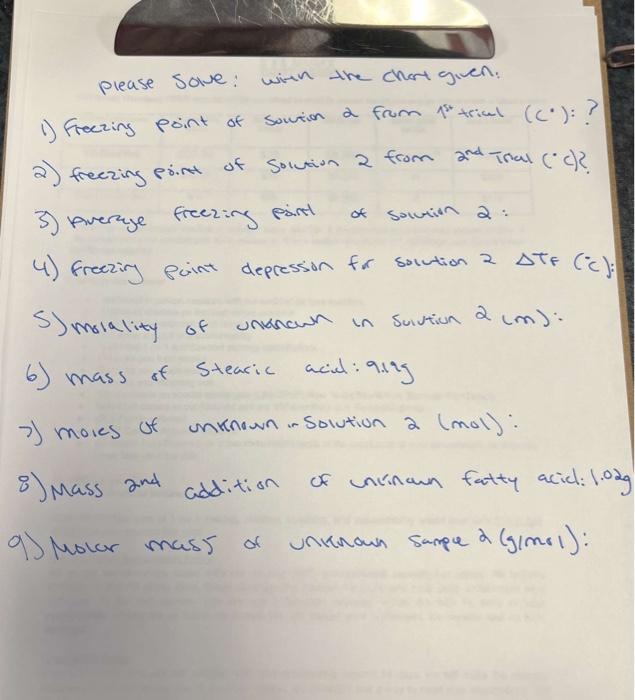 please Solve: with the chart given:
1) freezing point of solution 2 from 1st trial (c°): ?
2) freezing point of Solution 2 from 2nd Trial (°c)?
3) Average freezing point of solution 2:
4) freezing point depression for solution 2 ΔTF (°c):
5) molality of unknown in Solution 2 (m):
6) mass of Stearic acid: 9.19g
7) moles of unknown in Solution 2 (mol):
8) Mass 2nd addition of unknown fatty acid: 1.02g
9) Molar mass of unknown sample 2 (g/mol):